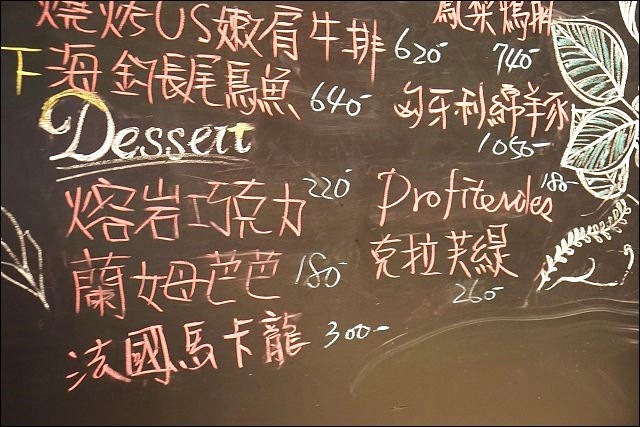 燒烤US嫩肩牛排 620-
740-
下 海釣長尾鳥魚 640-
匈牙利綿羊豚
1050-
Dessert
熔岩巧克力 220-
Profiteroles 180-
蘭姆芭芭 180-
克拉芙緹
260-
法國馬卡龍 300-